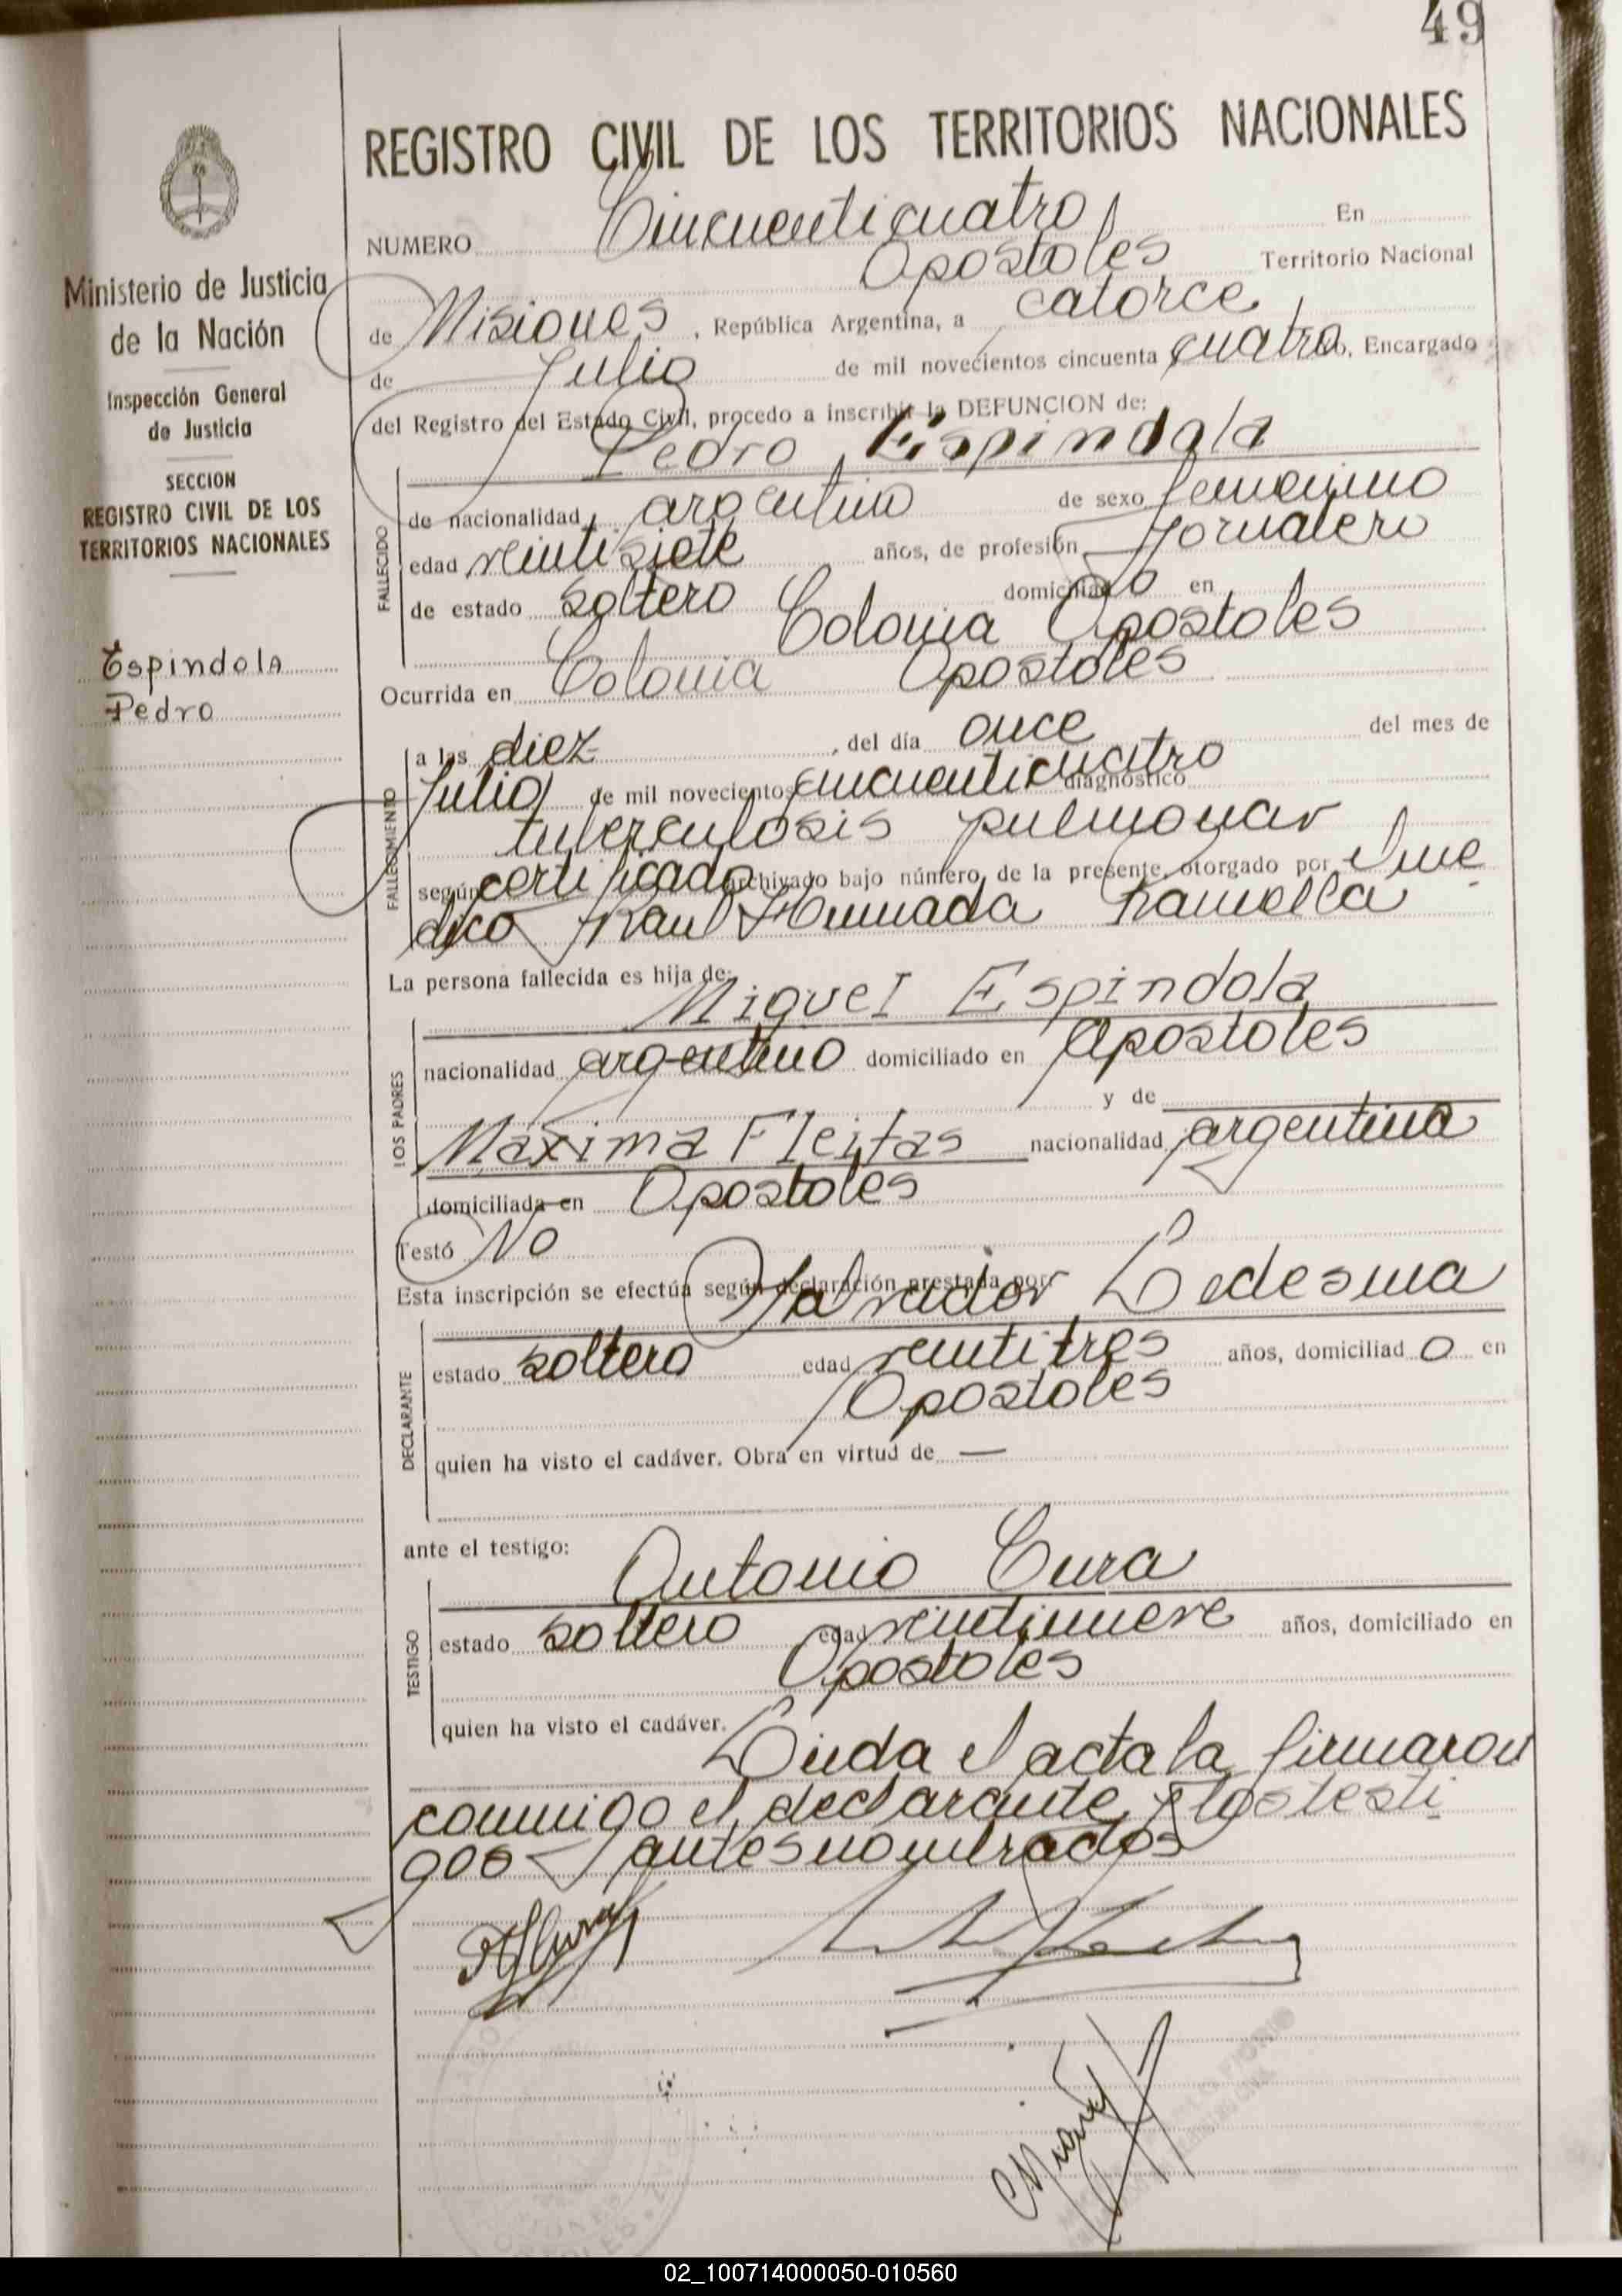 49
REGISTRO CIVIL DE LOS TERRITORIOS NACIONALES
Ministerio de Justicia
de la Nación
Inspección General
de Justicia
SECCION
REGISTRO CIVIL DE LOS
TERRITORIOS NACIONALES
Espindola
Pedro
NUMERO Cincuenticuatro En
Apostoles Territorio Nacional
de Misiones, República Argentina, a catorce
de Julio de mil novecientos cincuenta cuatro, Encargado
del Registro del Estado Civil, procedo a inscribir la DEFUNCION de:
Pedro Espindola
FALLECIDO
de nacionalidad argentino de sexo
edad veintisiete años, de profesión Jornalero
de estado soltero domiciliado en
Colonia Apostoles
Ocurrida en Colonia Apostoles
FALLECIMIENTO
a las diez, del día once del mes de
Julio de mil novecientos cincuenticuatro diagnóstico
tuberculosis pulmonar
según certificado archivado bajo número de la presente, otorgado por el me
dico Raul Ramella
La persona fallecida es hija de:
Miguel Espindola
LOS PADRES
nacionalidad argentino domiciliado en Apostoles
y de
Maxima Fleitas nacionalidad argentina
domiciliada en Apostoles
Testó No
Esta inscripción se efectúa según declaración prestada por
Salvador Ledesma
DECLARANTE
estado soltero edad veintitres años, domiciliado en
Apostoles
quien ha visto el cadáver. Obra en virtud de —
ante el testigo:
Antonio Cura
TESTIGO
estado soltero edad veintinueve años, domiciliado en
Apostoles
quien ha visto el cadáver. Leida el acta la firmaron
conmigo el declarante y los testi
gos antes nombrados
02_100714000050-010560